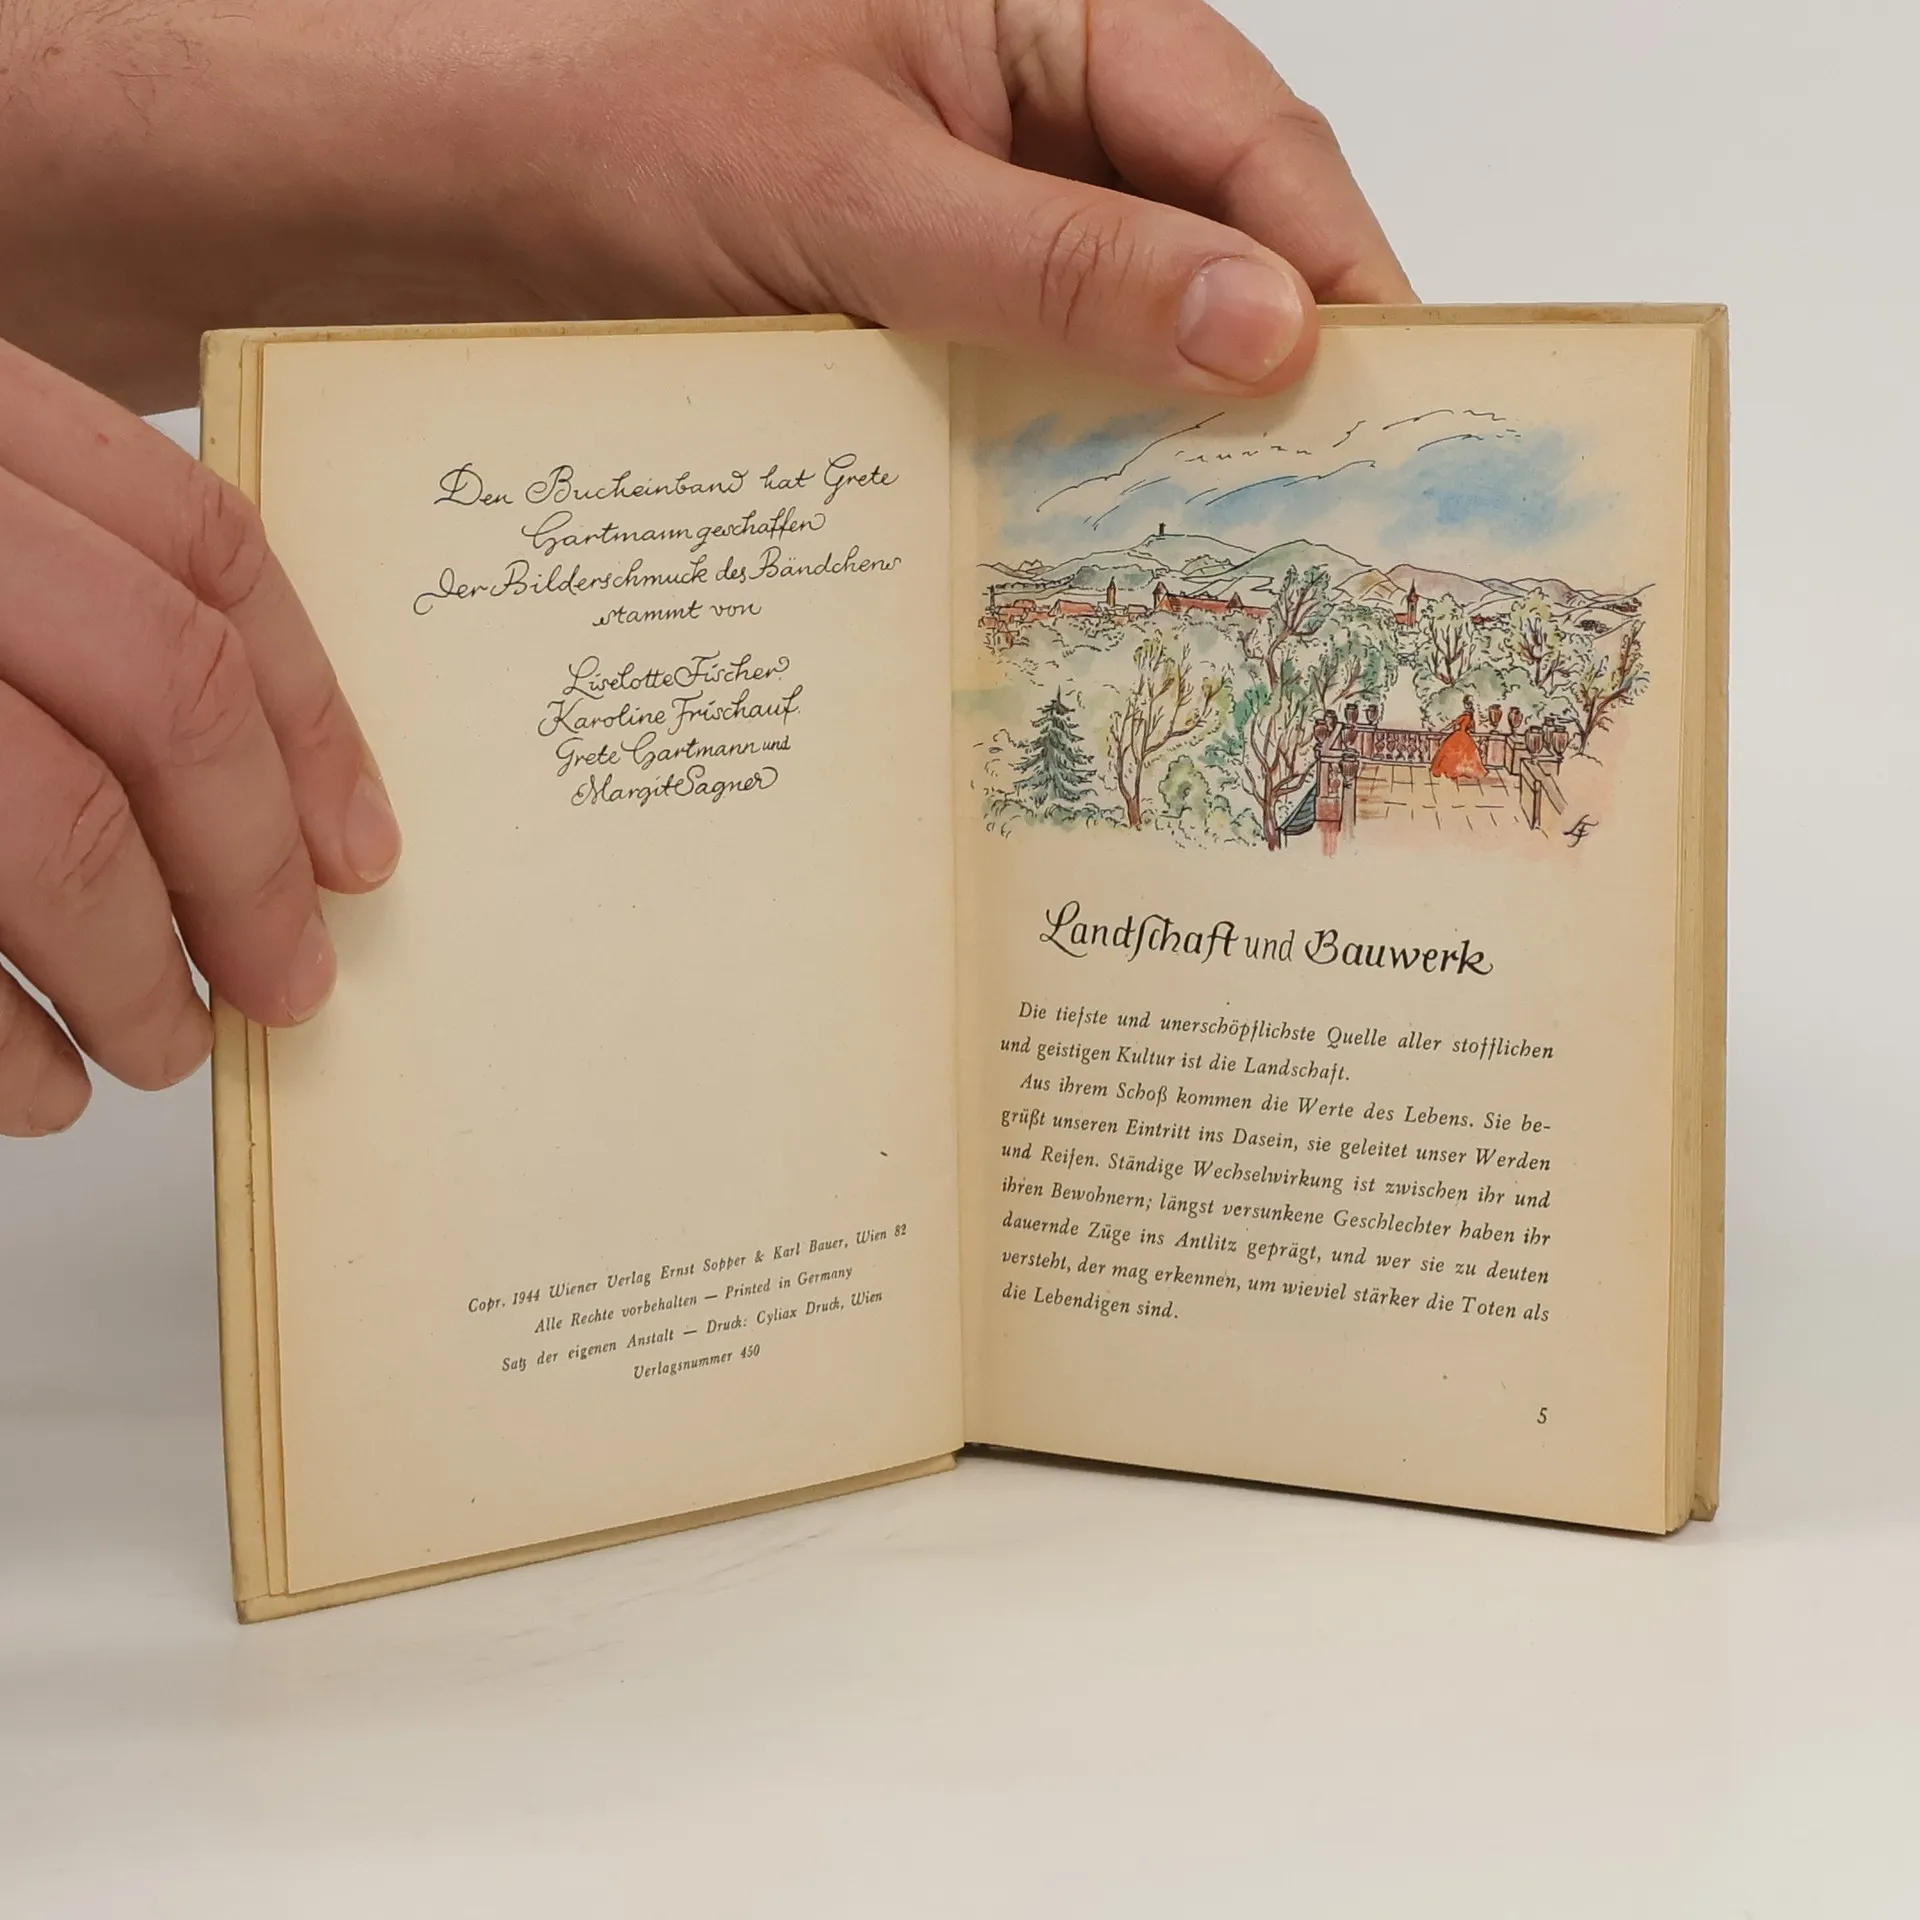 Den Bucheinband hat Grete
Hartmann geschaffen
Der Bilderschmuck des Bändchens
stammt von
Liselotte Fischer,
Karoline Frischauf,
Grete Hartmann und
Margit Sagner
Copr. 1944 Wiener Verlag Ernst Sopper & Karl Bauer, Wien 82
Alle Rechte vorbehalten — Printed in Germany
Satz der eigenen Anstalt — Druck: Cyliax Druck, Wien
Verlagsnummer 450
LF
Landſchaft und Bauwerk
Die tiefste und unerschöpflichste Quelle aller stofflichen
und geistigen Kultur ist die Landschaft.
Aus ihrem Schoß kommen die Werte des Lebens. Sie be-
grüßt unseren Eintritt ins Dasein, sie geleitet unser Werden
und Reifen. Ständige Wechselwirkung ist zwischen ihr und
ihren Bewohnern; längst versunkene Geschlechter haben ihr
dauernde Züge ins Antlitz geprägt, und wer sie zu deuten
versteht, der mag erkennen, um wieviel stärker die Toten als
die Lebendigen sind.
5